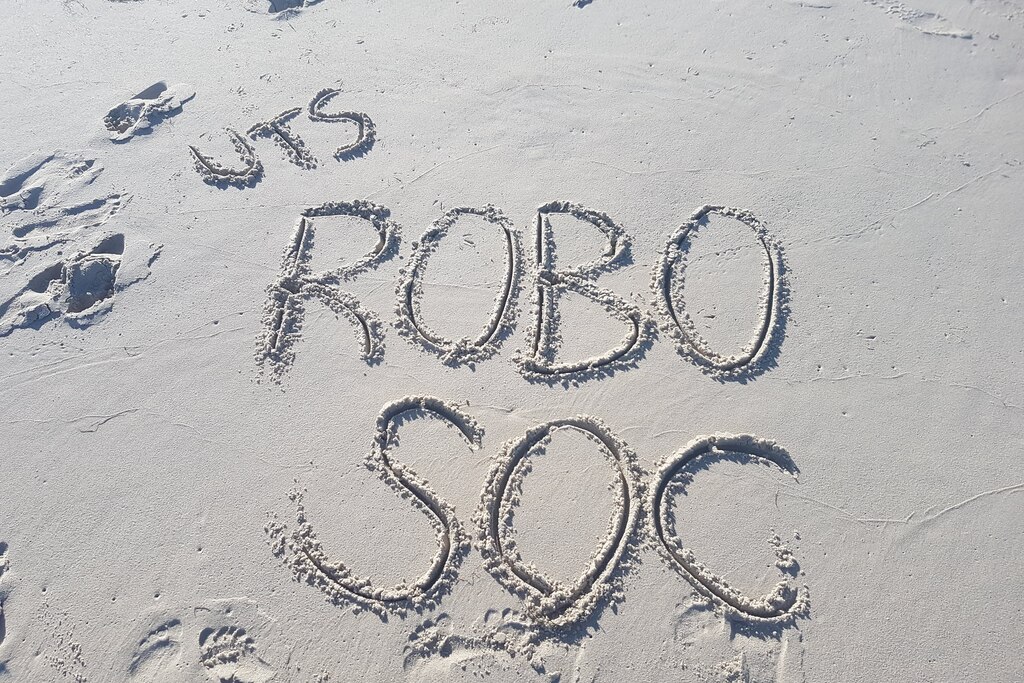 UTS
ROBO
SOC